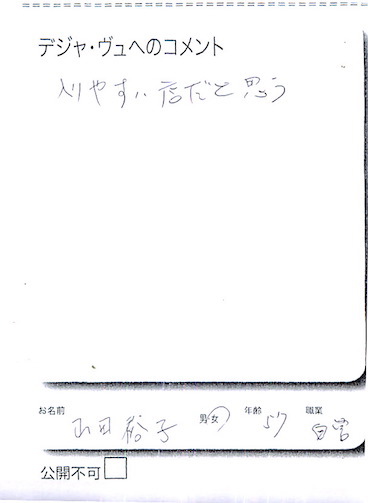 デジャ・ヴュへのコメント
入りやすい店だと思う
お名前 山田裕子 男・女 年齢 57 職業 自営
公開不可